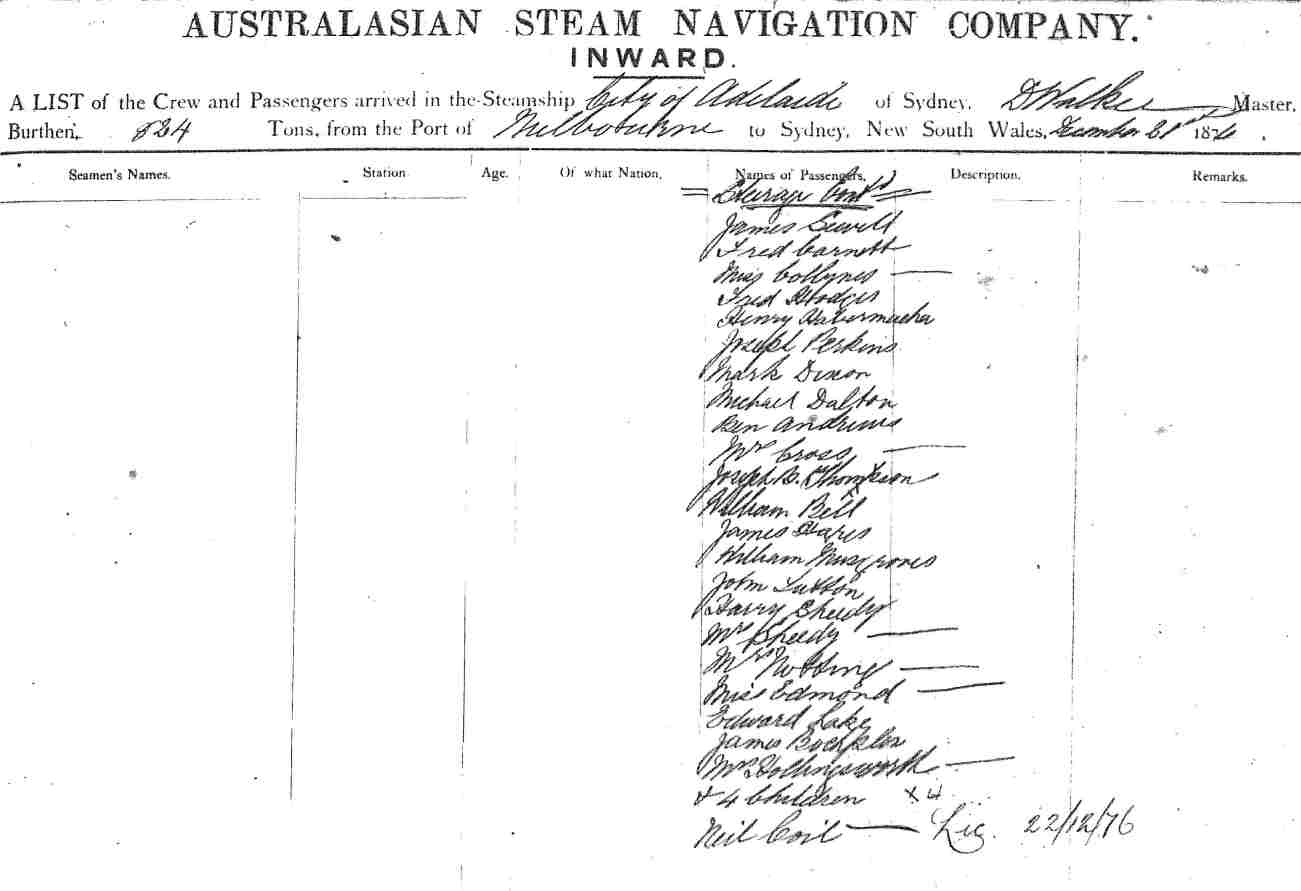 AUSTRALASIAN STEAM NAVIGATION COMPANY.
INWARD.
A LIST of the Crew and Passengers arrived in the Steamship City of Adelaide of Sydney, D Walker Master,
Burthen, 824 Tons, from the Port of Melbourne to Sydney, New South Wales, 187
Seamen's Names. Station Age. Of what Nation. Names of Passengers. Description. Remarks.
Steerage Contd
James Sewell
Fred Carnett
Miss Collynes
Fred Hodges
Henry Habermacher
Joseph Perkins
Mark Dixon
Michael Dalton
Ben Andrews
Mrs Cross
Joseph B. Thompson
William Bell
James Hares
William Musgroves
John Sutton
Harry Sheedy
Mrs Sheedy
Mrs Notting
Miss Edmond
Edward Lake
James
Mrs Hollingsworth
& 4 Children x 4
Neil Coil 22/12/76